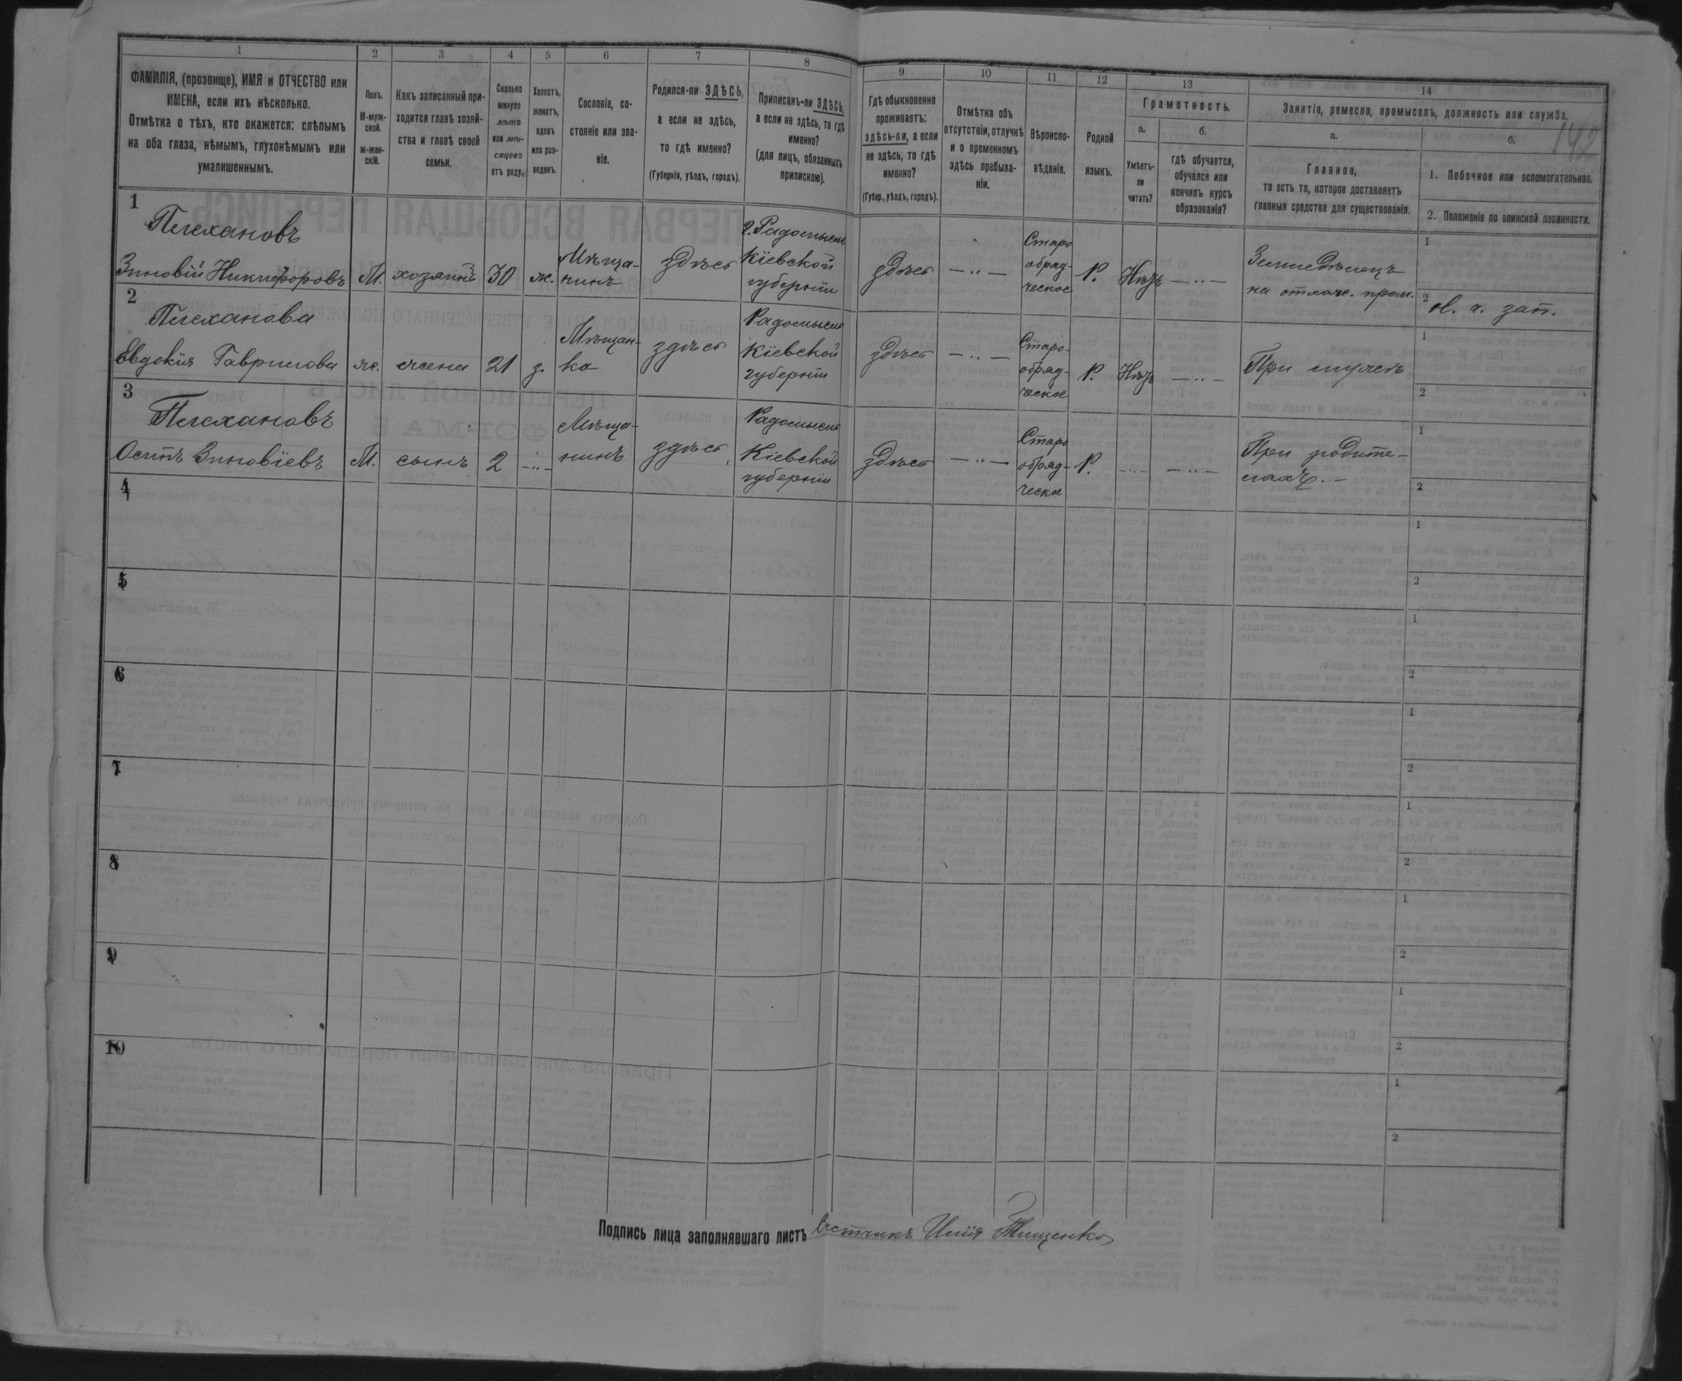 1
2
3
4
5
6
7
8
9
10
11
12
13
14
ФАМИЛІЯ, (прозвище), ИМЯ и ОТЧЕСТВО или
ИМЕНА, если ихъ нѣсколько.
Отмѣтка о тѣхъ, кто окажется: слѣпымъ
на оба глаза, нѣмымъ, глухонѣмымъ или
умалишеннымъ.
Полъ.
М-муж-
ской.
ж-жен-
скій.
Какъ записанный при-
ходится главѣ хозяй-
ства и главѣ своей
семьи.
Сколько
минуло
лѣтъ
или мѣ-
сяцевъ
отъ роду.
Холостъ,
женатъ,
вдовъ
или раз-
веденъ.
Сословіе, со-
стояніе или зва-
ніе.
Родился-ли ЗДѢСЬ,
а если не здѣсь,
то гдѣ именно?
(Губернія, уѣздъ, городъ).
Приписанъ-ли ЗДѢСЬ,
а если не здѣсь, то гдѣ
именно?
(для лицъ, обязанныхъ
припискою).
Гдѣ обыкновенно
проживаетъ:
здѣсь-ли, а если
не здѣсь, то гдѣ
именно?
(Губер., уѣздъ, городъ).
Отмѣтка объ
отсутствіи, отлучкѣ
и о временномъ
здѣсь пребыва-
ніи.
Вѣроиспо-
вѣданіе.
Родной
языкъ.
Грамотность.
а.
б.
Умѣетъ-
ли
читать?
гдѣ обучается,
обучался или
кончилъ курсъ
образованія?
Занятіе, ремесло, промыселъ, должность или служба.
142
а.
б.
Главное,
то есть то, которое доставляетъ
главныя средства для существованія.
1. Побочное или вспомогательное.
2. Положеніе по воинской повинности.
1
Плехановъ
Зиновій Никифоровъ
М.
хозяинъ
30
ж.
Мѣща-
нинъ
здѣсь
г. Радомысль
Кіевской
губерніи
здѣсь
— .. —
Старо
обряд-
ческое
Р.
Нѣтъ
— .. —
Земледѣлецъ
1
2
2
Плеханова
Евдокия Гаврилова
ж.
жена
21
з.
Мѣщан-
ка
здѣсь
Радомысль
Кіевской
губерніи
здѣсь
— .. —
Старо-
обряд-
ческое
Р.
Нѣтъ
— .. —
При мужѣ
1
2
3
Плехановъ
Осипъ Зиновіевъ
М.
сынъ
2
— .. —
Мѣща-
нинъ
здѣсь
Радомысль
Кіевской
губерніи
здѣсь
— .. —
Старо
обряд-
ческое
Р.
— .. —
— .. —
При родите-
ляхъ. —
1
2
4
1
2
5
1
2
6
1
2
7
1
2
8
1
2
9
1
2
10
1
2
Подпись лица заполнявшаго листъ Илія Тищенко